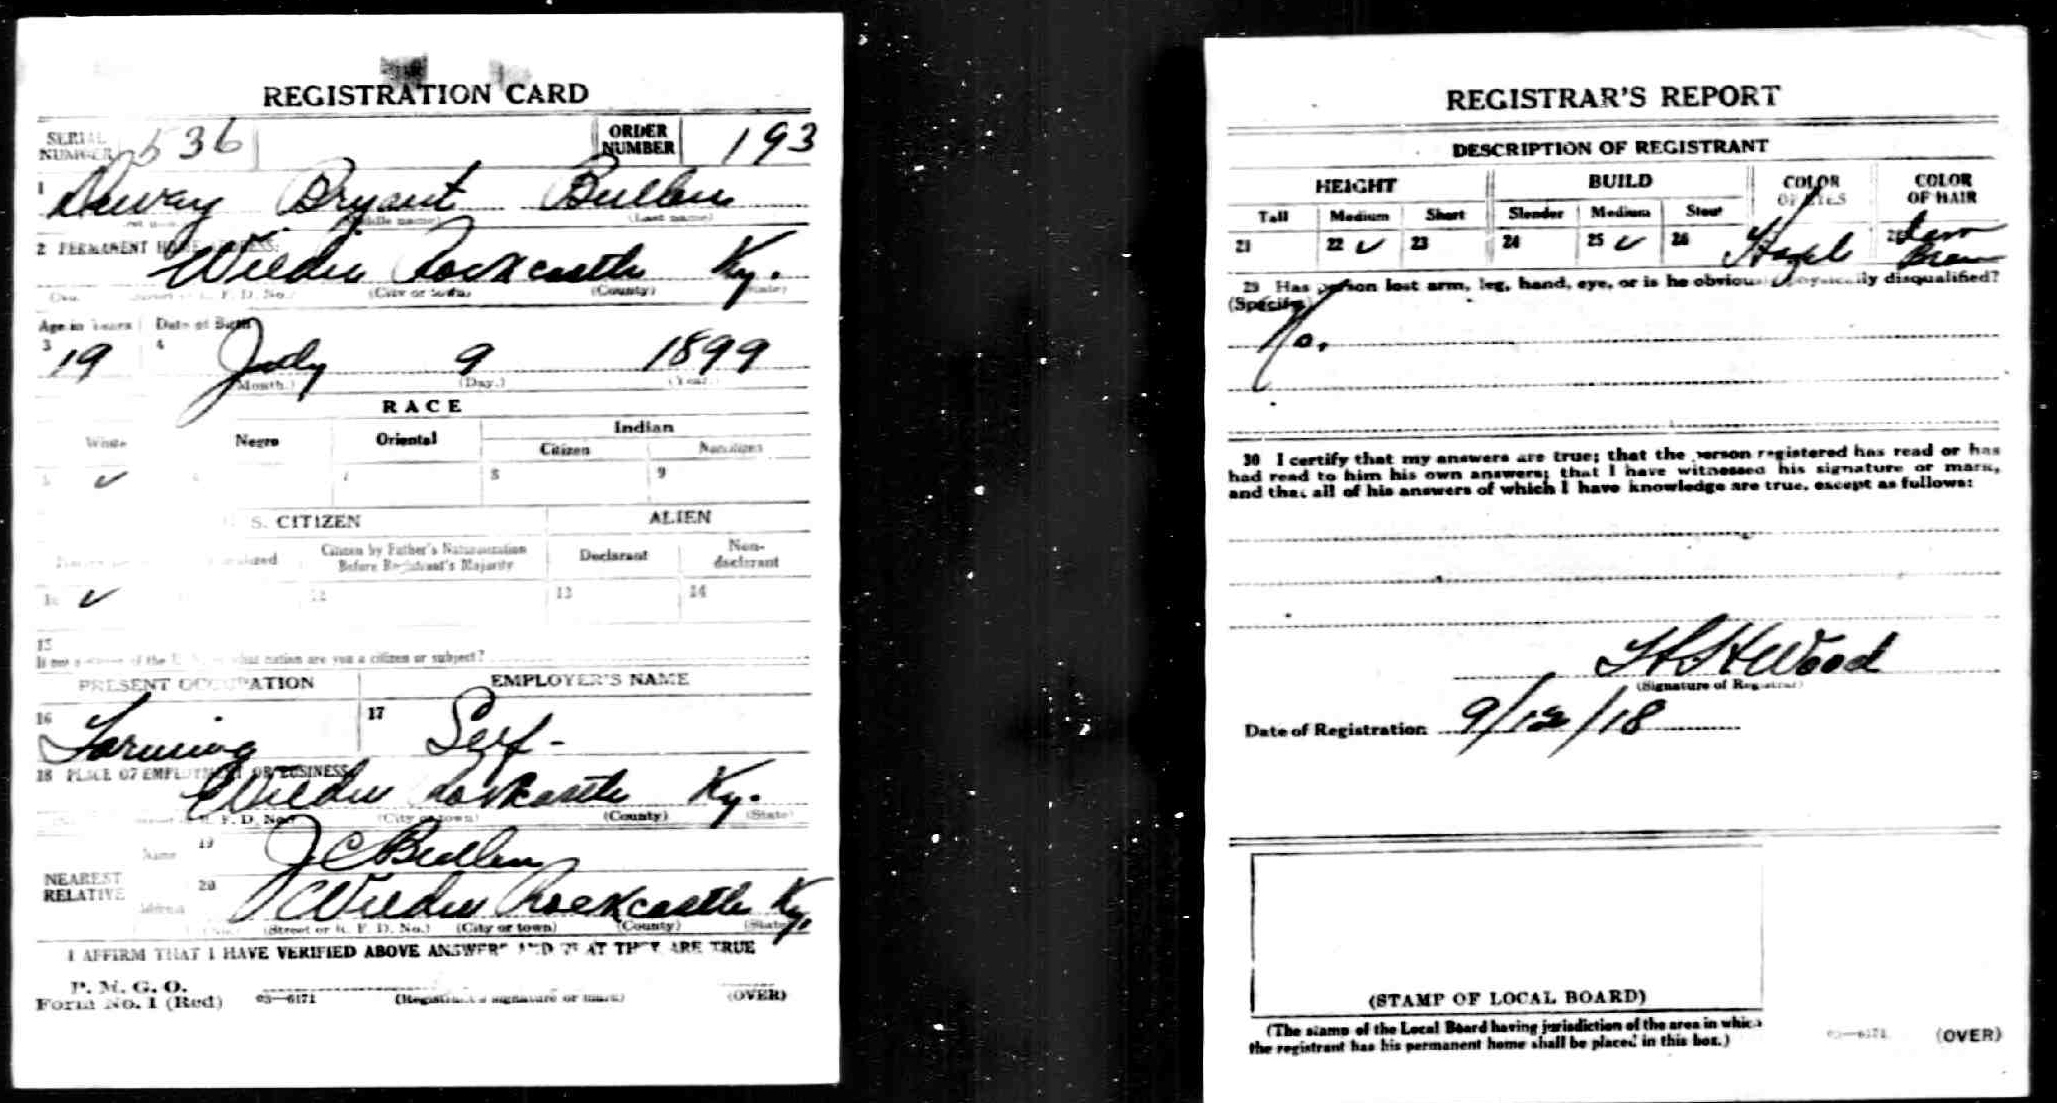 REGISTRATION CARD
SERIAL NUMBER 536 ORDER NUMBER 193
1 Dewey Bryant Bullen
(Middle name) (Last name)
2 PERMANENT HOME ADDRESS:
Wildie Rockcastle Ky.
(No.) (Street or R. F. D. No.) (City or town) (County) (State)
Age in Years Date of Birth
3 19 4 July 9 1899
(Month.) (Day.) (Year.)
RACE
White Negro Oriental Indian
Citizen Noncitizen
5 ✓ 6 7 8 9
U. S. CITIZEN ALIEN
Naturalized Citizen by Father's Naturalization Before Registrant's Majority Declarant Non-declarant
10 ✓ 12 13 14
15
If not a citizen of the U. S., of what nation are you a citizen or subject?
PRESENT OCCUPATION EMPLOYER'S NAME
16 Farming 17 Self-
18 PLACE OF EMPLOYMENT OR BUSINESS:
Wildie Rockcastle Ky.
(Street or R. F. D. No.) (City or town) (County) (State)
NEAREST RELATIVE Name 19 J C Bullen
Address 20 Wildie Rockcastle Ky.
(No.) (Street or R. F. D. No.) (City or town) (County) (State)
I AFFIRM THAT I HAVE VERIFIED ABOVE ANSWERS AND THAT THEY ARE TRUE
P. M. G. O.
Form No. 1 (Red) 03—6171 (Registrant's signature or mark) (OVER)
REGISTRAR'S REPORT
DESCRIPTION OF REGISTRANT
HEIGHT BUILD COLOR OF EYES COLOR OF HAIR
Tall Medium Short Slender Medium Stout
21 22 ✓ 23 24 25 ✓ 26 Hazel 28
29 Has person lost arm, leg, hand, eye, or is he obviously physically disqualified?
(Specify.)
No.
30 I certify that my answers are true; that the person registered has read or has
had read to him his own answers; that I have witnessed his signature or mark,
and that all of his answers of which I have knowledge are true, except as follows:
Wood
(Signature of Registrar)
Date of Registration 9/12/18
(STAMP OF LOCAL BOARD)
(The stamp of the Local Board having jurisdiction of the area in which
the registrant has his permanent home shall be placed in this box.)
03—6171 (OVER)